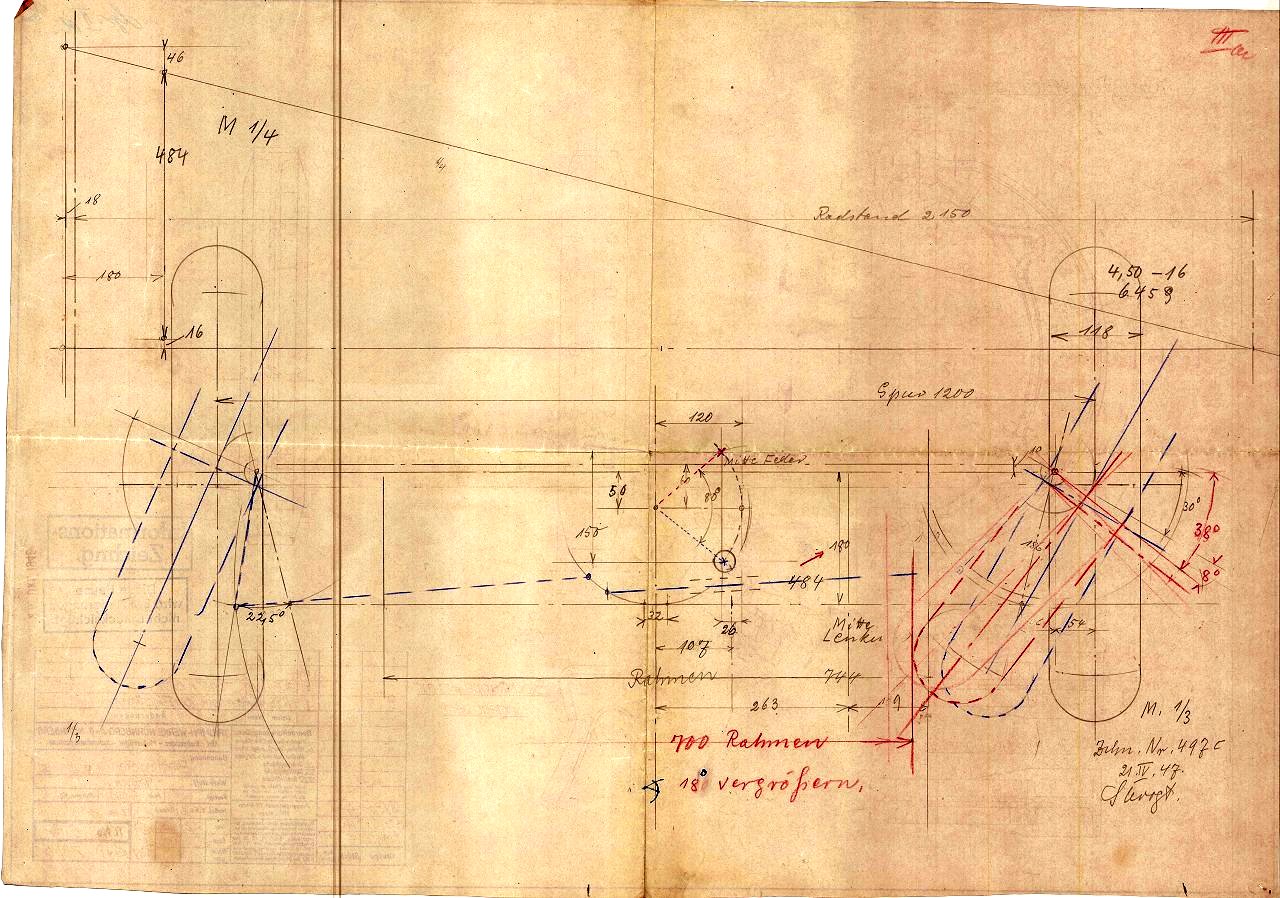 III a
46
M 1/4
484
18
Radstand 2150
180
4,50 – 16
16
118
Spur 1200
120
Mitte Feder
10
50
80°
30°
38°
150
180
186
484
8°
22,5°
32
26
54
Mitte
Lenker
107
Rahmen 744
263
9
M. 1/3
1/3
700 Rahmen
Zchn. Nr. 497c
21.IV.47.
∢ 18° vergrößern.